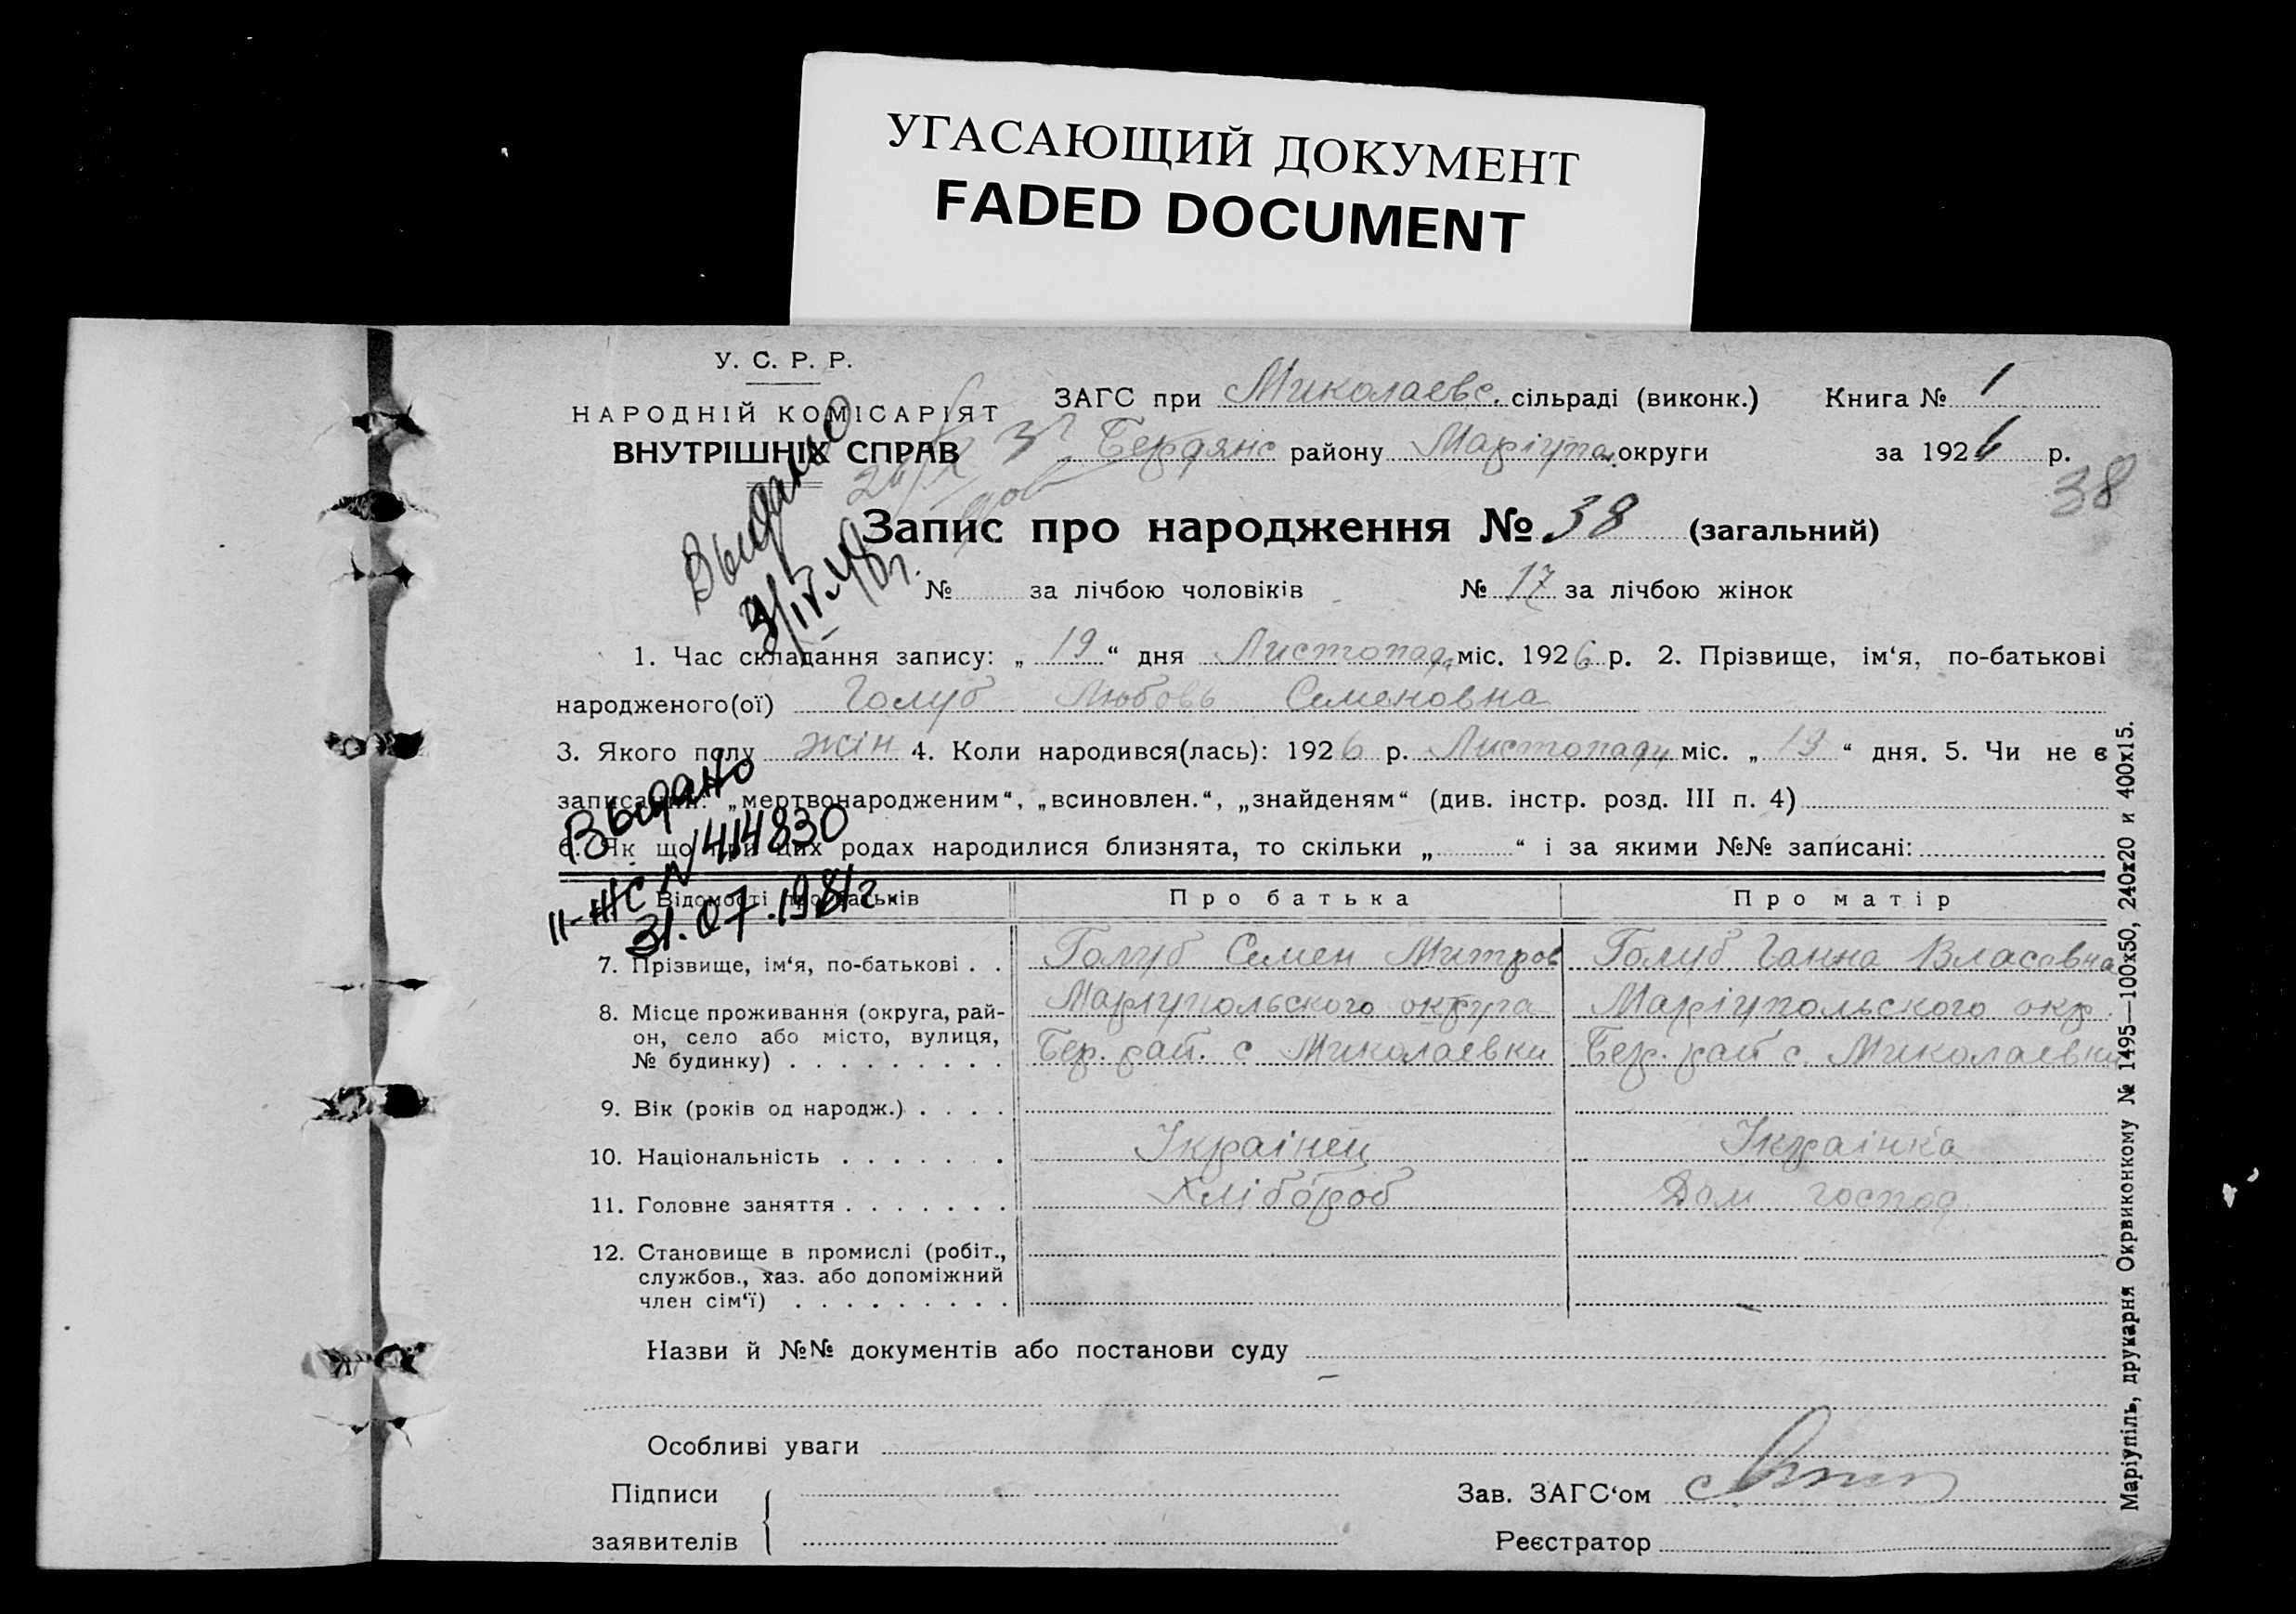 УГАСАЮЩИЙ ДОКУМЕНТ
FADED DOCUMENT
У. С. Р. Р.
НАРОДНІЙ КОМІСАРІЯТ
ВНУТРІШНІХ СПРАВ
ЗАГС при Миколаевс. сільраді (виконк.) Книга № 1
Бердянс району Маріупол. округи за 1926 р.
38
Запис про народження № 38 (загальний)
№ за лічбою чоловіків № 17 за лічбою жінок
Выдано
3/IV-48г.
1. Час складання запису: „ 19 “ дня Листопада міс. 1926 р. 2. Прізвище, ім‘я, по-батькові
народженого(ої) Голуб Любовь Семеновна
3. Якого полу жін 4. Коли народився(лась): 1926 р. Листопаду міс. „ 13 “ дня. 5. Чи не є
записаний: „мертвонародженим“, „всиновлен.“, „знайденям“ (див. інстр. розд. III п. 4)
6. Як що при цих родах народилися близнята, то скільки „ “ і за якими №№ записані:
Выдано
II-ЖС № 414830
31.07.1981г.
Відомості про батьків Про батька Про матір
7. Прізвище, ім‘я, по-батькові . . Голуб Семен Митров Голуб Ганна Власовна
8. Місце проживання (округа, рай- Маріупольского округа Маріупольского окр.
он, село або місто, вулиця,
№ будинку) . . . . . . . . . Бер. рай. с Миколаевки Бер. рай с. Миколаевки
9. Вік (років од народж.) . . . .
10. Національність . . . . . . . Українец Українка
11. Головне заняття . . . . . . . Хлібороб Дом господ.
12. Становище в промислі (робіт.,
службов., хаз. або допоміжний
член сім‘ї) . . . . . . . . .
Назви й №№ документів або постанови суду
Особливі уваги
Підписи
заявителів
Зав. ЗАГС‘ом
Реєстратор
Маріупіль, друкарня Окрвиконкому № 1495—100х50, 240х20 и 400х15.